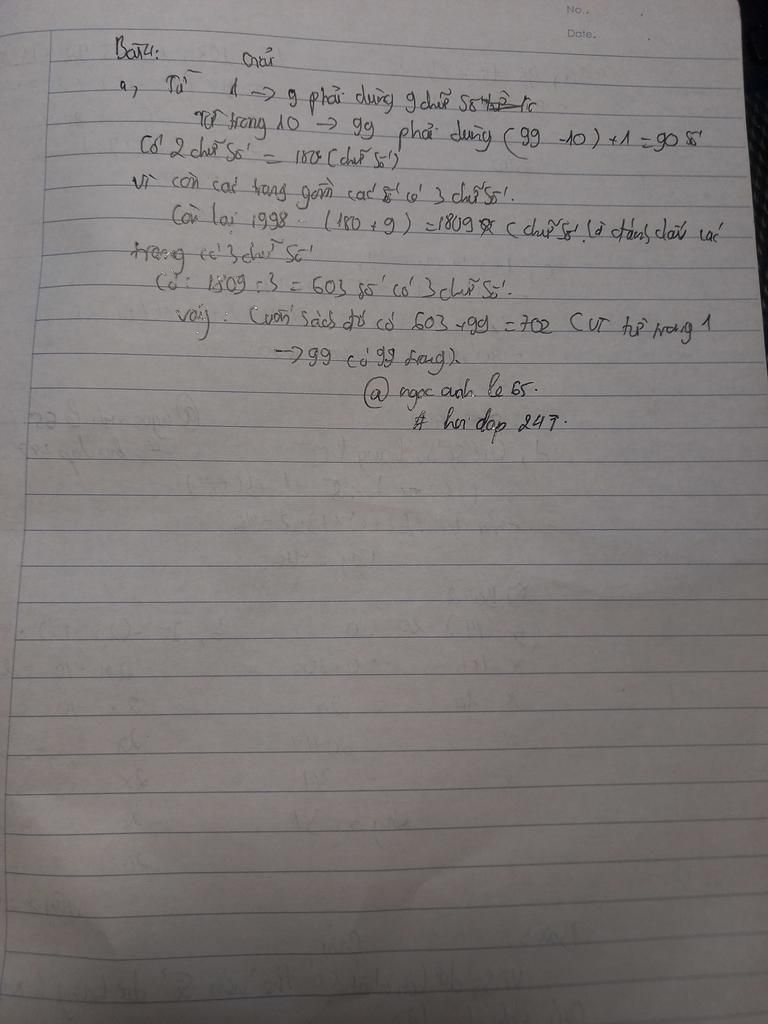 No.
Date.
Bài 4: Giải
a, Từ 1 → 9 phải dùng 9 chữ số
Từ trang 10 → 99 phải dùng (99 - 10) + 1 = 90 số
Có 2 chữ số = 180 (chữ số)
Vì còn các trang gồm các số có 3 chữ số.
Còn lại 1998 - (180 + 9) = 1809 (chữ số là đánh dấu các
trang có 3 chữ số
Có: 1809 : 3 = 603 số có 3 chữ số.
Vậy: Cuốn sách đó có 603 + 99 = 702 (Vì từ trang 1
→ 99 có 99 trang).
@ ngoc anh le 65.
# hoi dap 247.